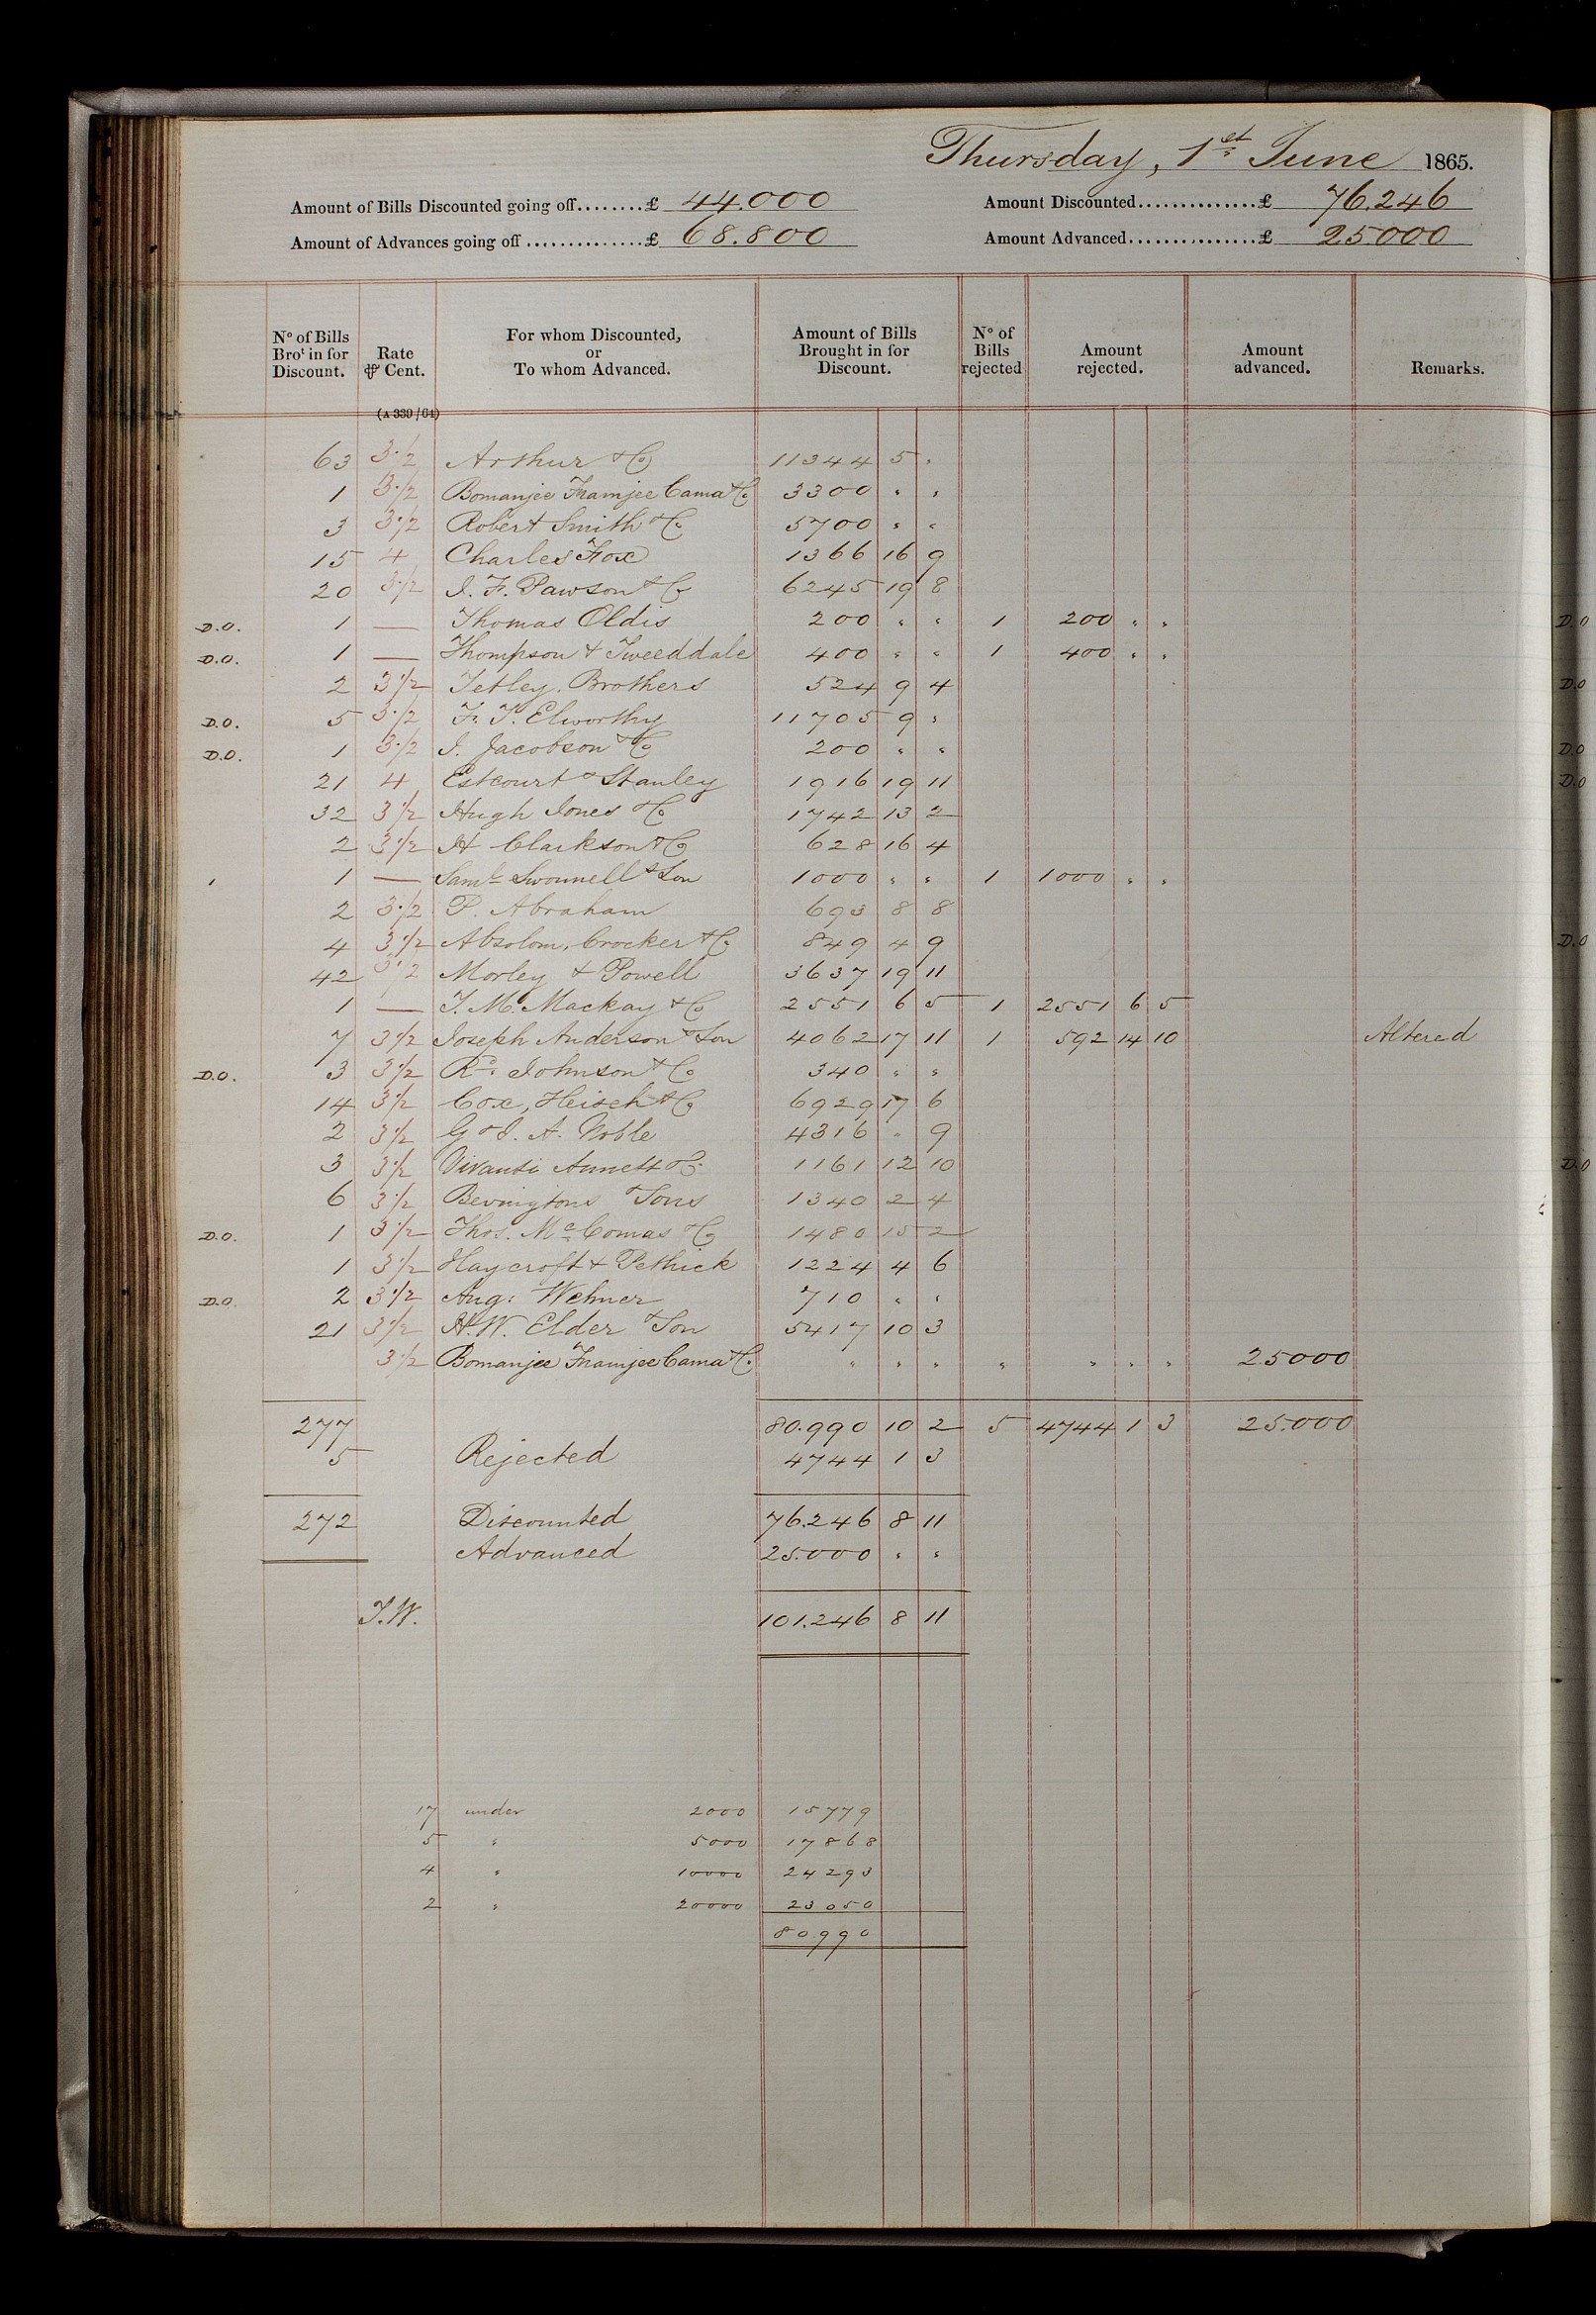 Thursday, 1st June 1865.
Amount of Bills Discounted going off........£ 44.000 Amount Discounted...............£ 76.246
Amount of Advances going off...............£ 68.800 Amount Advanced................£ 25000
No of Bills Brot in for Discount. Rate ⅌ Cent. For whom Discounted, or To whom Advanced. Amount of Bills Brought in for Discount. No of Bills rejected Amount rejected. Amount advanced. Remarks.
(A 339/64)
63 3½ Arthur & Co 11344 5 "
1 3½ Bomanjee Framjee Cama & Co 3300 " "
3 3½ Robert Smith & Co 5700 " "
15 4 Charles Fox 1366 16 9
20 3½ J. F. Pawson & Co 6245 19 8
D.O. 1 — Thomas Oldis 200 " " 1 200 " "
D.O. 1 — Thompson & Tweeddale 400 " " 1 400 " "
2 3½ Tetley, Brothers 524 9 4
D.O. 5 3½ F. T. Elworthy 11705 9 "
D.O. 1 3½ J. Jacobson & Co 200 " "
21 4 Estcourt & Stanley 1916 19 11
32 3½ Hugh Jones & Co 1742 13 2
2 3½ H Clarkson & Co 628 16 4
1 — Saml Swonnell & Son 1000 " " 1 1000 " "
2 3½ P. Abraham 693 8 8
4 3½ Absolom, Crocker & Co 849 4 9
42 3½ Morley & Powell 3637 19 11
1 — T. M. Mackay & Co 2551 6 5 1 2551 6 5
7 3½ Joseph Anderson & Son 4062 17 11 1 592 14 10 Altered
D.O. 3 3½ Rd. Johnson & Co 340 " "
14 3½ Cox, Heisch & Co 6929 17 6
2 3½ G & J. A. Noble 4316 " 9
3 3½ Vivanti Annett & Co 1161 12 10
6 3½ Bevingtons & Sons 1340 2 4
D.O. 1 3½ Thos. Mc Comas & Co 1480 15 2
1 3½ Haycroft & Pethick 1224 4 6
D.O. 2 3½ Aug: Wehner 710 " "
21 3½ H. W. Elder & Son 5417 10 3
3½ Bomanjee Framjee Cama & Co " " " " " " " 25000
277 80.990 10 2 5 4744 1 3 25.000
5 Rejected 4744 1 3
272 Discounted 76.246 8 11
Advanced 25.000 " "
T.W. 101.246 8 11
17 under 2000 15779
5 " 5000 17868
4 " 10000 24293
2 " 20000 23050
80990
D.O
D.O
D.O
D.O
D.O
D.O